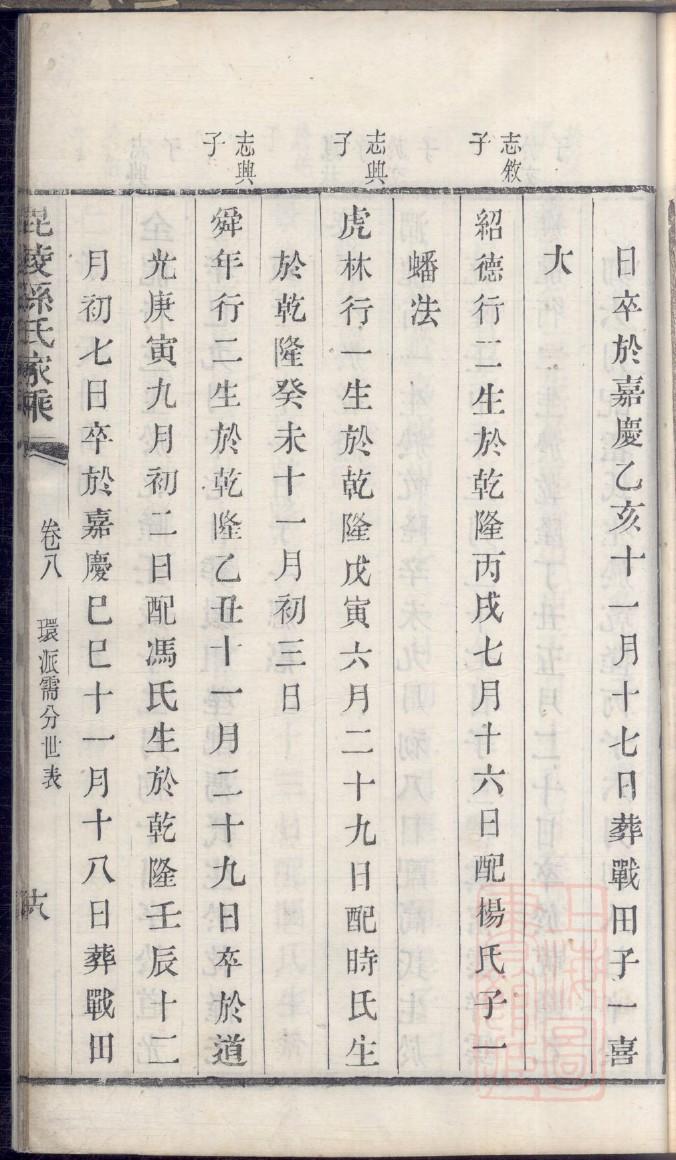 日卒於嘉慶乙亥十一月十七日葬戰田子一喜
大
志敘
子
紹德行二生於乾隆丙戌七月十六日配楊氏子一
蟠法
志興
子
虎林行一生於乾隆戊寅六月二十九日配時氏生
於乾隆癸未十一月初三日
志興
子
舜年行二生於乾隆乙丑十一月二十九日卒於道
光庚寅九月初二日配馮氏生於乾隆壬辰十二
月初七日卒於嘉慶巳巳十一月十八日葬戰田
毘陵孫氏家乘
卷八
環派需分世表